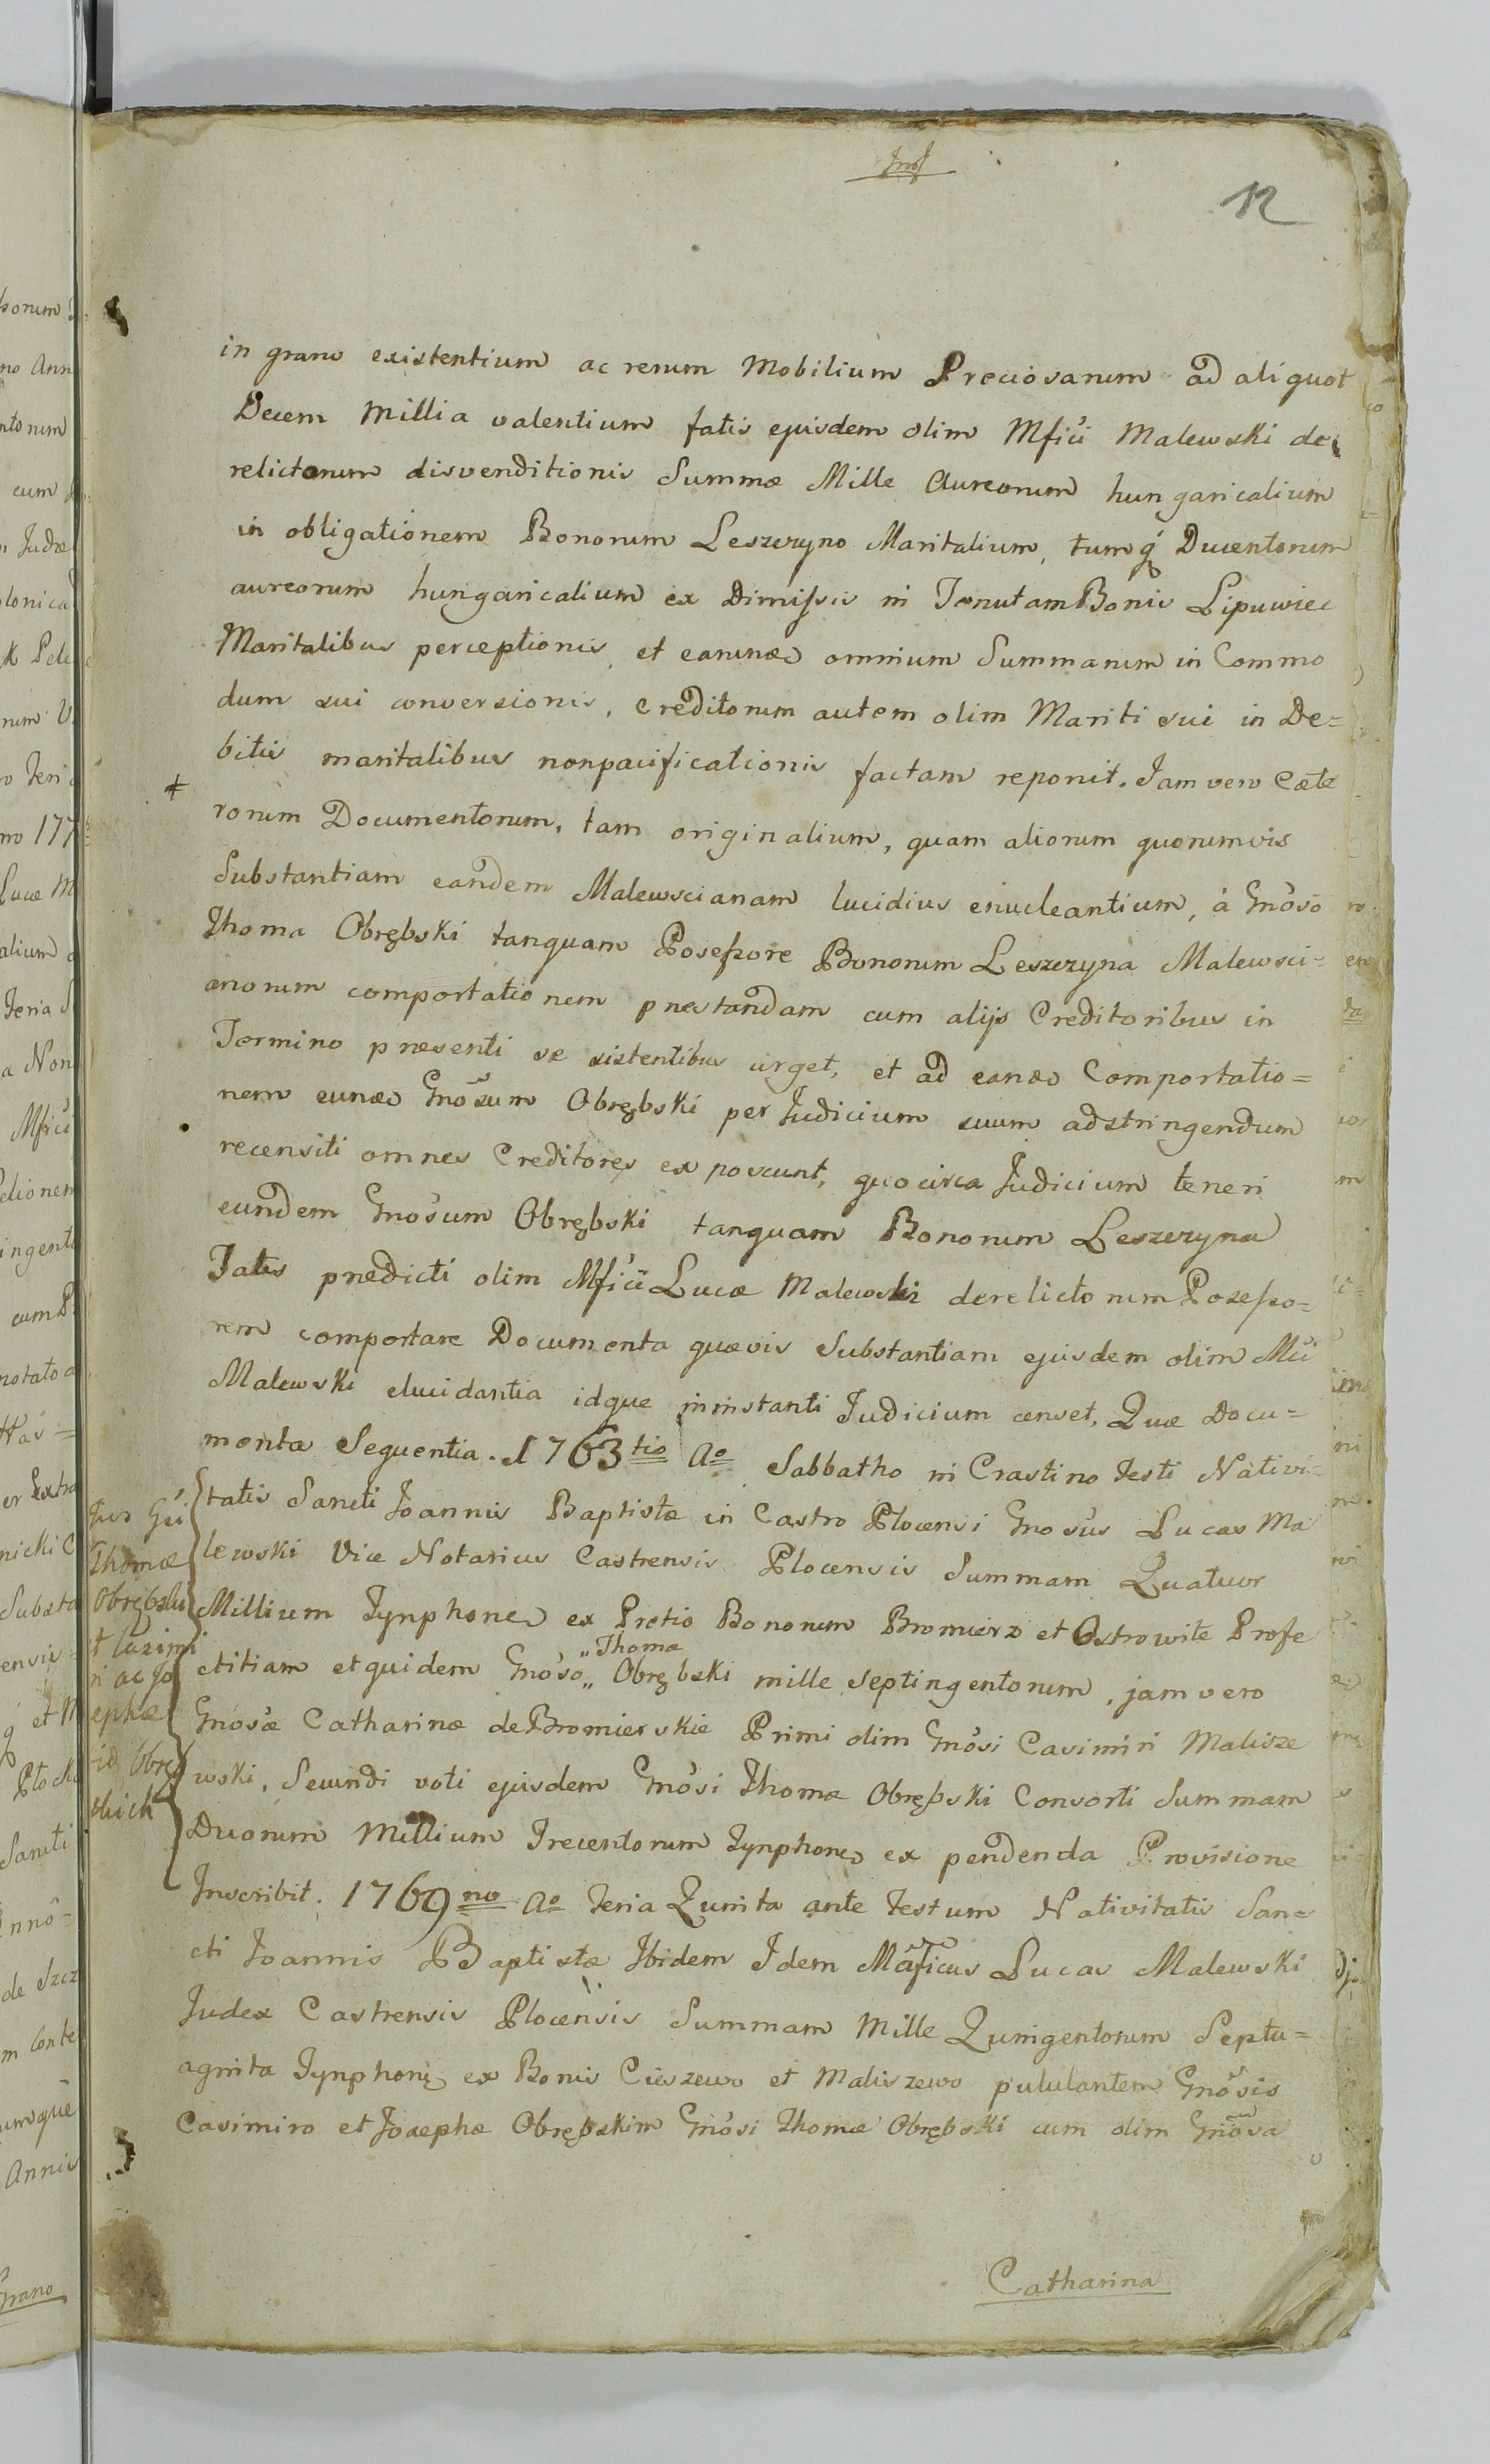 12
in grano existentium ac rerum Mobilium Preciosarum ad aliquot
Decem Millia valentium fatis ejusdem olim Mfici Malewski de
relictorum disvenditionis Summæ Mille Aureorum hungaricalium
in obligationem Bonorum Leszczyno Maritalium, tumq́ Ducentorum
aureorum hungaricalium ex Dimissis in Tenutam Bonis Lipuwiec
Maritalibus perceptionis, et earundem omnium Summarum in Commo
dum sui conversionis, Creditorum autem olim Mariti sui in De=
bitis maritalibus nonpacificationis factam reponit. Jam vero Cæte
rorum Documentorum, tam originalium, quam aliorum quorumvis
Substantiam eandem Malewscianam lucidius enucleantium, à Gnoso
Thoma Obrębski tanquam Possessore Bonorum Leszczyna Malewsci=
anorum comportationem præstandam cum alijs Creditoribus in
Termino præsenti se sistentibus urget, et ad eandem Comportatio=
nem eundem Gnosum Obrębski per Judicium suum adstringendum
recensiti omnes Creditores exposcunt, quocirca Judicium teneri
eundem Gnosum Obrębski tanquam Bonorum Leszczyna
Fatis prædicti olim Mfici Lucæ Malewski derelictorum Possesso=
rem comportare Documenta quævis Substantiam ejusdem olim Mci
Malewski elucidantia idque in instanti Judicium censet, Quæ Docu=
menta Sequentia. 1763tio Ao Sabbatho in Crastino Festi Nativi=
tatis Sancti Joannis Baptistæ in Castro Plocensi Gnosus Lucas Ma
lewski Vice Notarius Castrensis Plocensis Summam Quatuor
Millium Tynphones ex Pretio Bonorum Bromierz et Ostrowite Profe
ctitiam et quidem Gnoso „Thomæ„ Obrębski mille septingentorum, jam vero
Gnosæ Catharinæ de Bromierskie Primi olim Gnosi Casimiri Malisze
wski, Secundi voti ejusdem Gnosi Thomæ Obrębski Consorti Summam
Duorum Millium Trecentorum Tynphones ex pendenda Provisione
Inscribit. 1769no Ao Feria Quinta ante Festum Nativitatis San=
cti Joannis Baptistæ Ibidem Idem Mâficus Lucas Malewski
Judex Castrensis Plocensis Summam Mille Quingentorum Septu=
aginta Tynphones ex Bonis Cieszewo et Maliszewo pululantem Gnosis
Casimiro et Josephæ Obrębskim Gnosi Thomæ Obrębski cum olim Gnosa
Catharina
Jus Gsi
Thomæ
Obrębski
t Casimi
ri ac Jo
sephæ
id Obręb
skich